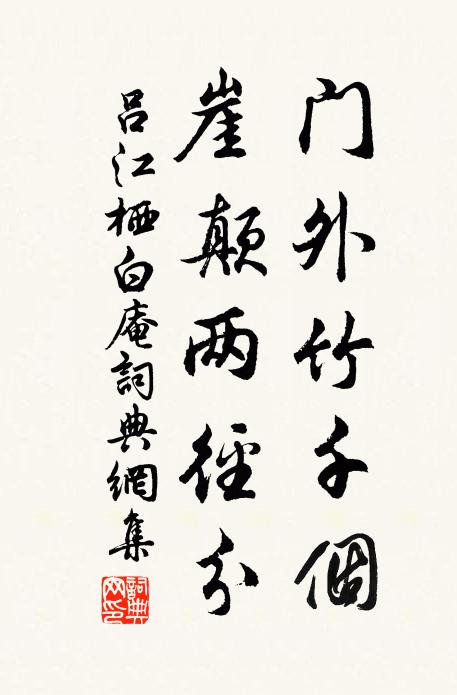 门外竹千個
崖颠两徑分
吕江栖白庵詞典網集
詞典网印